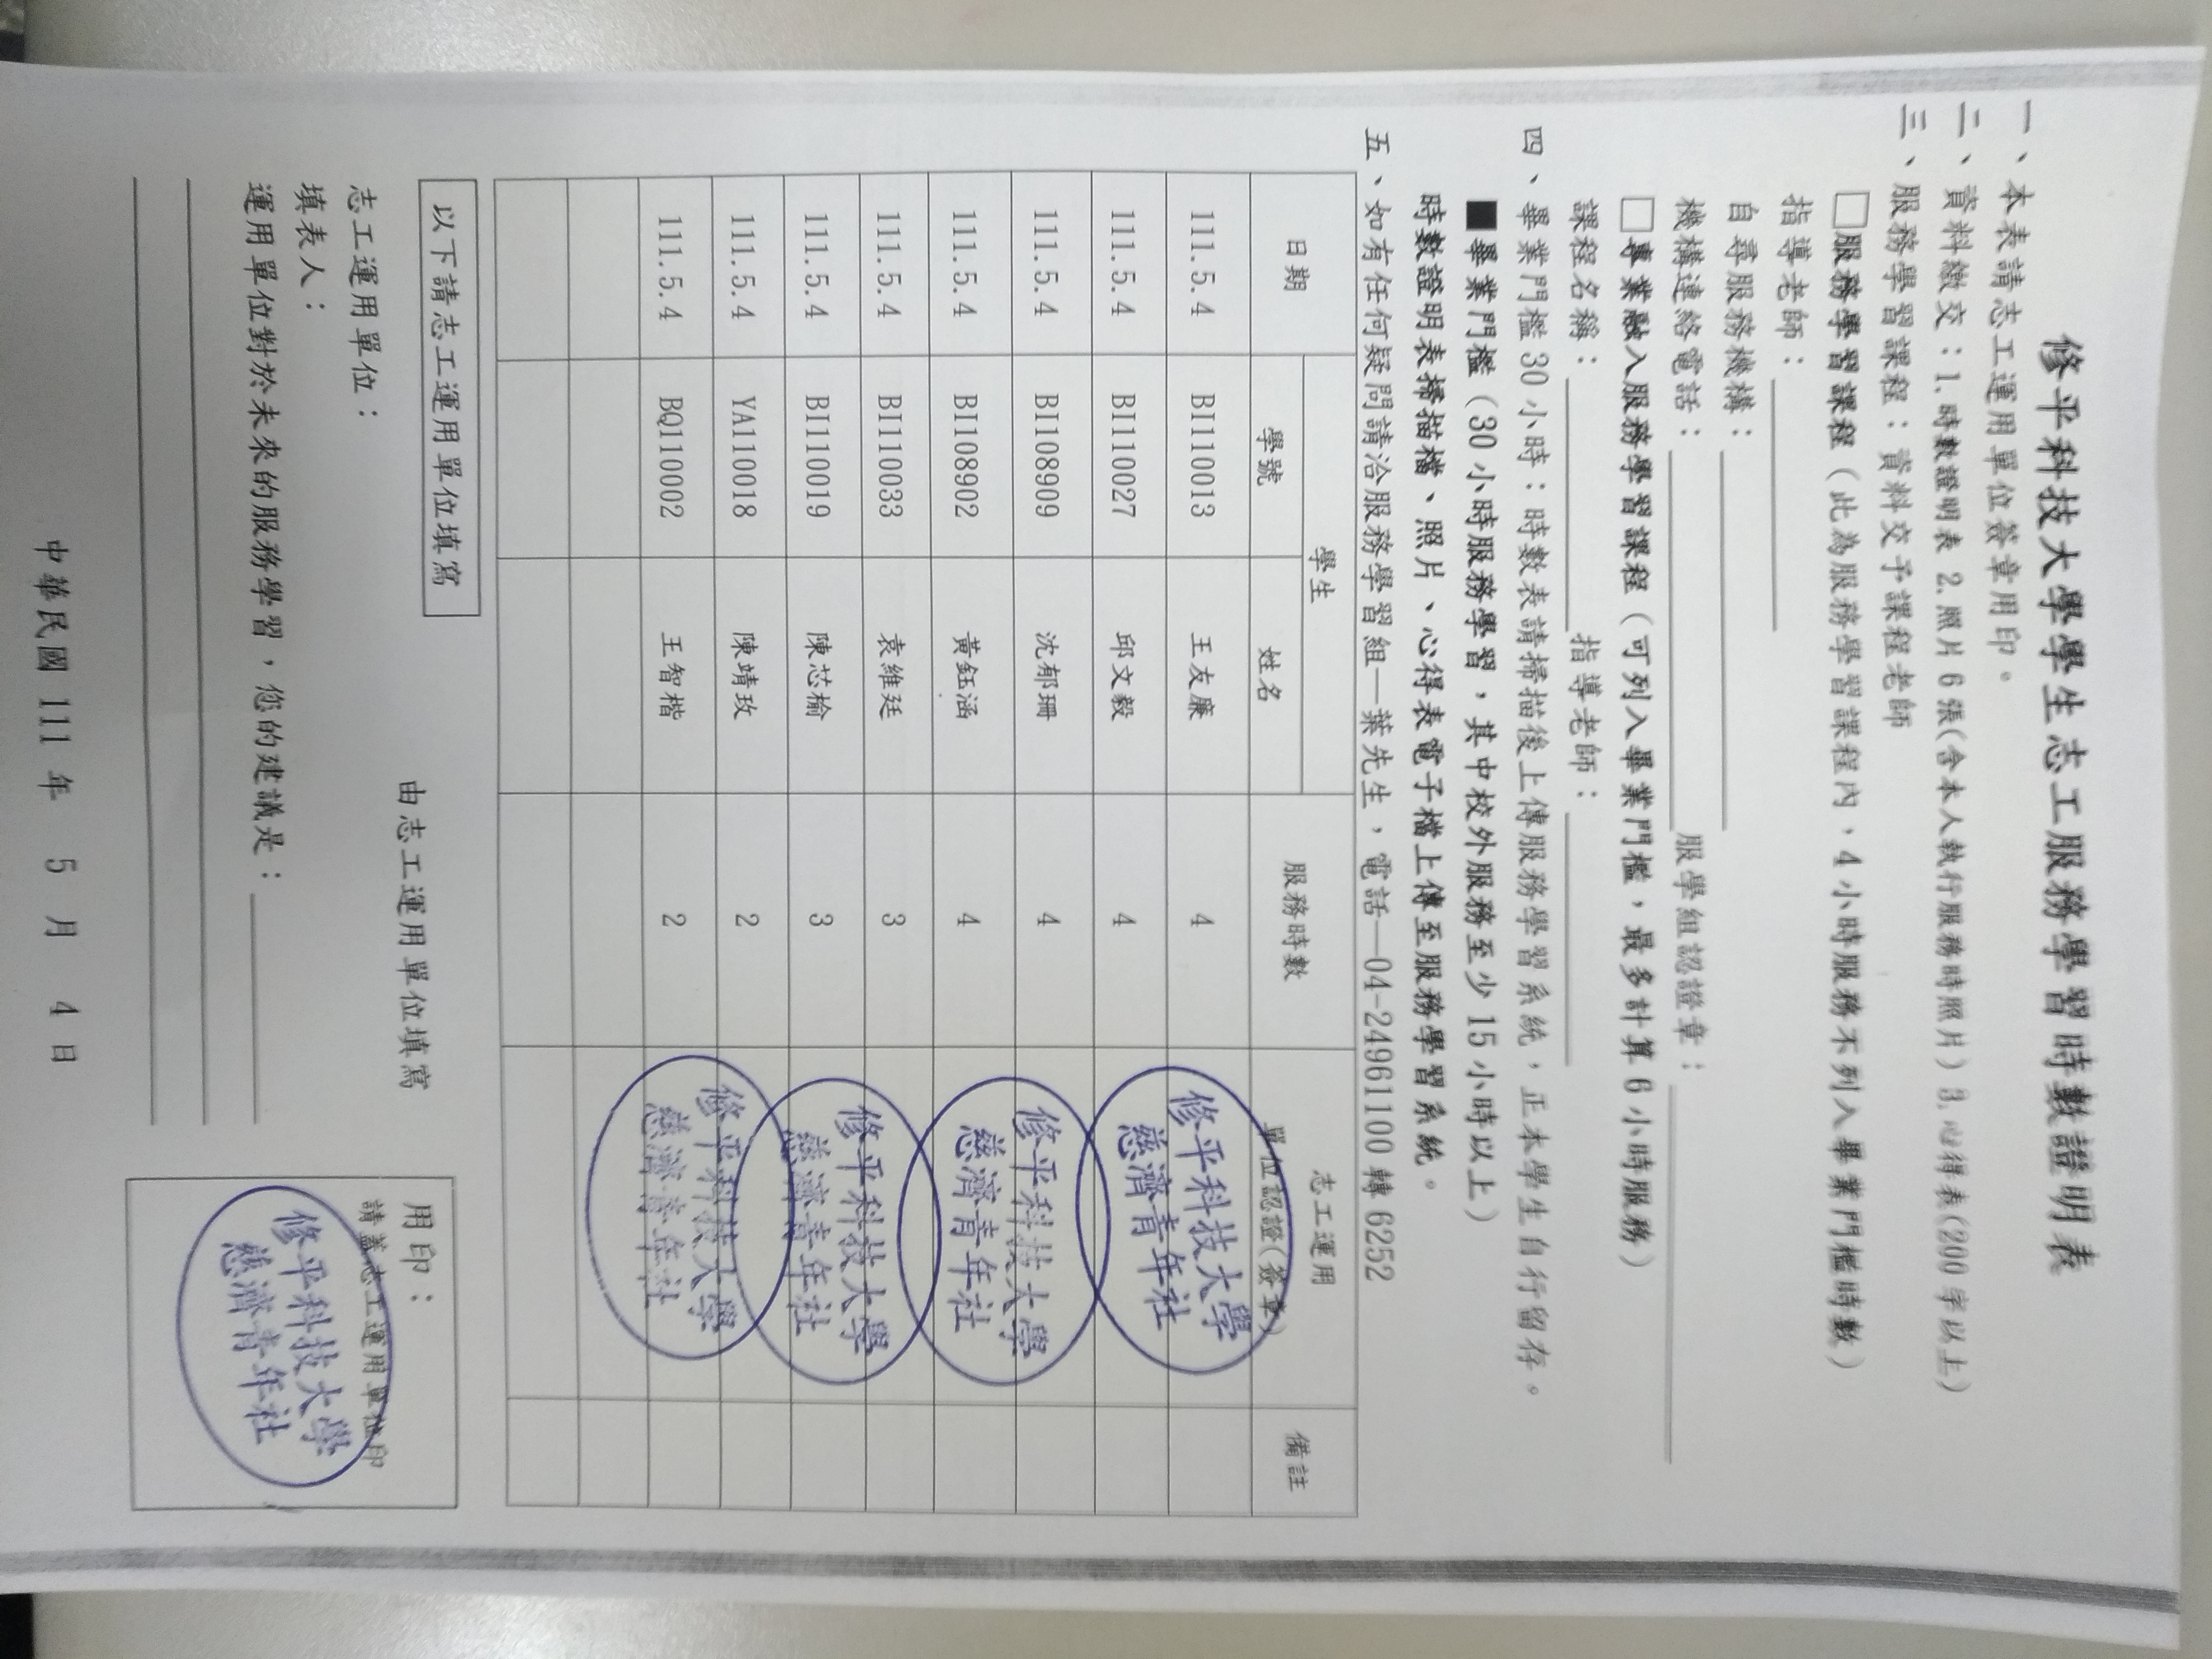 修平科技大學學生志工服務學習時數證明表
一、本表請志工運用單位簽章用印。
二、資料繳交：1.時數證明表 2.照片6張(含本人執行服務時照片) 3.心得表(200字以上)
三、服務學習課程：資料交予課程老師
□服務學習課程（此為服務學習課程內，4小時服務不列入畢業門檻時數）
指導老師：
自尋服務機構：
機構連絡電話： 服學組認證章：
□專業融入服務學習課程（可列入畢業門檻，最多計算6小時服務）
課程名稱： 指導老師：
四、畢業門檻30小時：時數表請掃描後上傳服務學習系統，正本學生自行留存。
■畢業門檻（30小時服務學習，其中校外服務至少15小時以上）
時數證明表掃描檔、照片、心得表電子檔上傳至服務學習系統。
五、如有任何疑問請洽服務學習組—葉先生，電話—04-24961100轉6252
日期 學生 服務時數 志工運用 備註
學號 姓名 單位認證(簽章)
111.5.4 BI110013 王友廉 4
111.5.4 BI110027 邱文毅 4
111.5.4 BI108909 沈郁珊 4
111.5.4 BI108902 黃鈺涵 4
111.5.4 BI110033 袁維廷 3
111.5.4 BI110019 陳芯榆 3
111.5.4 YA110018 陳靖玫 2
111.5.4 BQ110002 王智楷 2
修平科技大學
慈濟青年社
修平科技大學
慈濟青年社
修平科技大學
慈濟青年社
修平科技大學
慈濟青年社
以下請志工運用單位填寫
由志工運用單位填寫
志工運用單位：
填表人：
運用單位對於未來的服務學習，您的建議是：
用印：
請蓋志工運用單位印
修平科技大學
慈濟青年社
中華民國 111 年 5 月 4 日